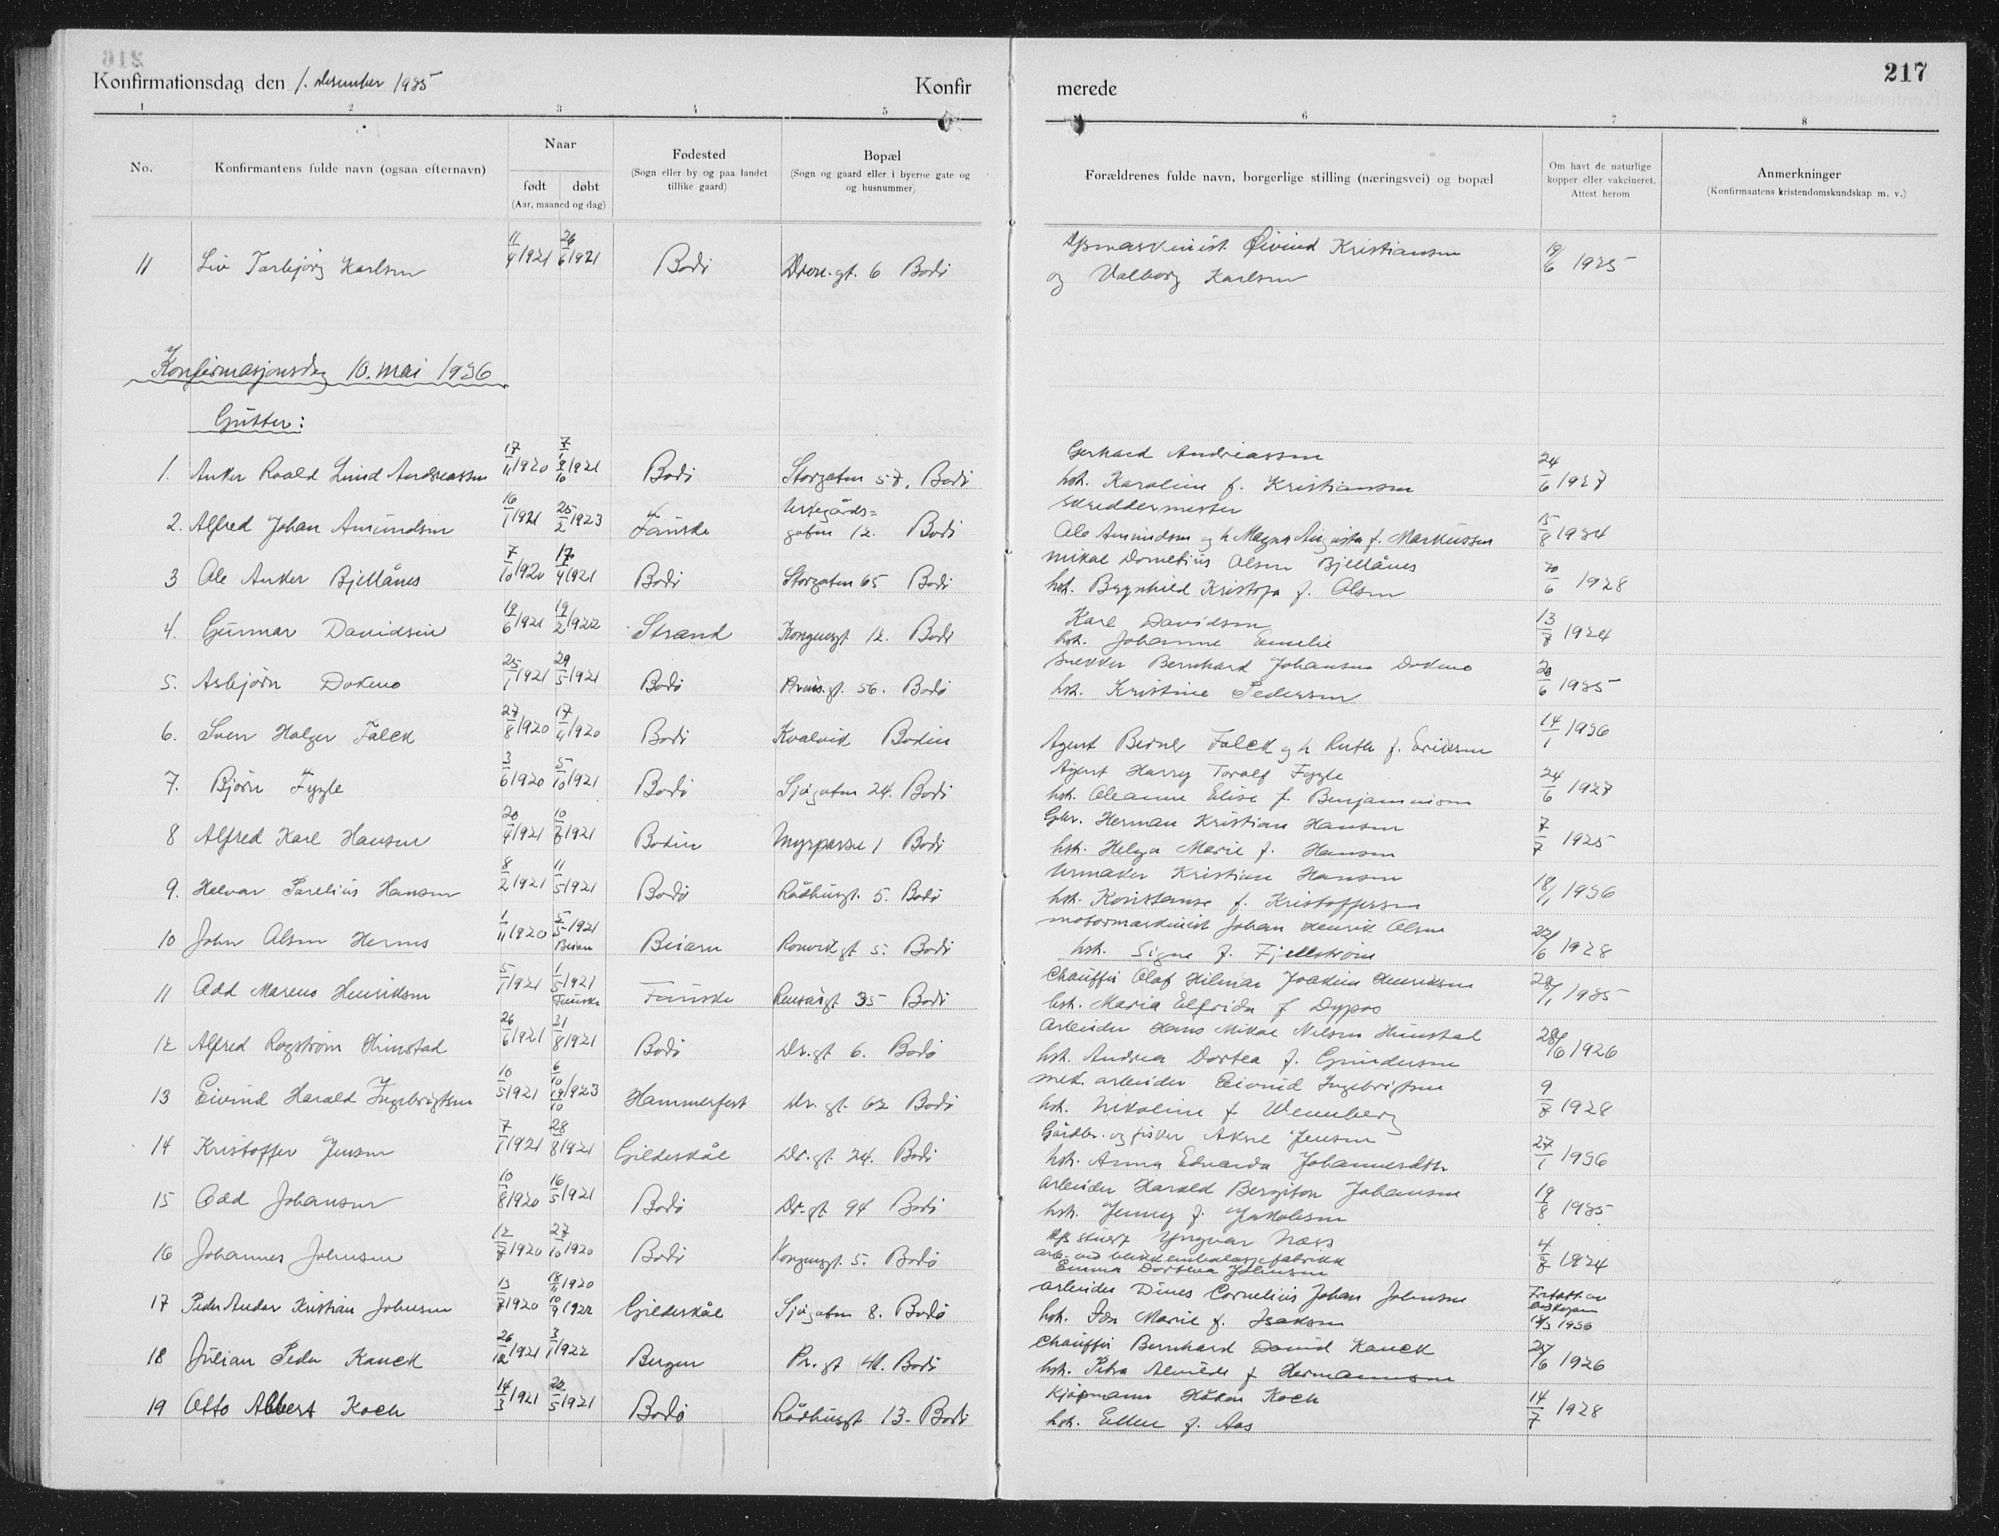 217
Konfirmationsdag den 1. desember 1935
Konfir
merede
1 2 3 4 5 6 7 8
No.
Konfirmantens fulde navn (ogsaa efternavn)
Naar
født døbt
(Aar, maaned og dag)
Fødested
(Sogn eller by og paa landet
tillike gaard)
Bopæl
(Sogn og gaard eller i byerne gate og
og husnummer)
Forældrenes fulde navn, borgerlige stilling (næringsvei) og bopæl
Om havt de naturlige
kopper eller vakcineret.
Attest herom
Anmerkninger
(Konfirmantens kristendomskundskap m. v.)
11 Liv Torbjørg Karlsen 11/4 1921 26/6 1921 Bodø gt. 6 Bodø Øivind Kristiansen
og Valborg Karlsen 19/6 1935
Konfirmasjonsdag 10. mai 1936
Gutter:
1. Anker Roald Lund Andreassen 17/11 1920 1921 Bodø Storgaten 57. Bodø Gerhard Andreassen
hst. Karoline f. Kristiansen 24/6 1927
2. Alfred Johan Amundsen 16/1 1921 25/2 1923 Fauske gaten 12. Bodø skreddermester
Ole Amundsen og h. Magna Augusta f. Markussen 15/8 1934
3 Ole Anker Bjellånes 7/10 1920 17/4 1921 Bodø Storgaten 65 Bodø Mikal Dometius Olsen Bjellånes
hst. Brynhild Kristofa f. Olsen 20/6 1928
4. Gunnar Davidsen 19/6 1921 19/2 1922 Strand Kongensgt 12. Bodø Karl Davidsen
hst. Johanne Emelie 13/7 1924
5. Asbjørn Dokmo 25/1 1921 29/5 1921 Bodø Prins.gt. 56. Bodø snekker Bernhard Johansen Dokmo
hst. Kristine Pedersen 20/6 1935
6. Sven Holger Falck 27/8 1920 17/11 1920 Bodø Kvalvik Bodin
Agent Berner Falck og h Ruth f. Eriksen 14/1 1936
7. Bjørn Fygle 3/6 1920 5/10 1921 Bodø Sjøgaten 24. Bodø Agent Harry Toralf Fygle
hst. Oleanne Elise f. Benjaminsen 24/6 1927
8 Alfred Karl Hansen 20/4 1921 1921 Bodin Myrpasse 1 Bodø Gbr. Herman Kristian Hansen
hst. Helga Marie f. Hansen 7/7 1925
9. Halvar Parelius Hansen 8/2 1921 11/5 1921 Bodø Rådhusgt. 5. Bodø Urmaker Kristian Hansen
hst. Konstanse f. Kristoffersen 18/1 1936
10 John Olsen Hernes 1/11 1920 5/5 1921 Beiarn Beiarn gt 5. Bodø motormaskinist Johan Henrik Olsen
hst. Signe f. Fjellstrøm 22/6 1928
11 Odd Marenus Henriksen 5/1 1921 1/5 1921 Fauske Fauske gt 35 Bodø Chauffør Olaf Hilmar Joakim Henriksen
hst. Maria Elfrida f Dypos 28/1 1935
12 Alfred Rogstrøm Himstad 26/6 1921 31/8 1921 Bodø Dr.gt 6. Bodø Arbeider Hans Mikal Nilsen Himstad
hst. Andrea Dortea f. Gundersen 28/6 1926
13 Eivind Harald Ingebrigtsen 10/5 1921 1923 Hammerfest Dr.gt. 62 Bodø mek. arbeider Eivind Ingebrigtsen
hst. Nikoline f Wennberg 9/8 1928
14 Kristoffer Jensen 7/1 1921 28/8 1921 Gildeskål Dr.gt. 24. Bodø Gårdbr. og fisker Aksel Jensen
hst. Anna Edvarda Johannesdtr 27/1 1936
15 Odd Johansen 10/8 1920 16/5 1921 Bodø Dr.gt 94 Bodø Arbeider Harald Bergiton Johansen
hst. Jenny f. Jakobsen 19/8 1935
16 Johannes Johnsen 12/7 1920 27/10 1920 Bodø Kongensgt. 5. Bodø stuert Yngvar Næss
arb. ved blikkemballagefabrikk
Emma Dortea Johnsen 4/8 1924
17 Peder Andor Kristian Johnsen 13/7 1920 18/11 1920 10/9 1922 Gildeskål Sjøgaten 8. Bodø arbeider Dines Cornelius Johan Johnsen
hst. Ida Marie f. Isaksen 1936
18 Julian Peder Kanck 26/12 1921 3/1 1922 Bergen Pr.gt 41. Bodø Chauffør Bernhard David Kanck
hst. Petra Alvilde f Hermannsen 25/6 1926
19 Otto Albert Koch 14/3 1921 20/5 1921 Bodø Rådhusgt 13. Bodø Kjøpmann Håkon Koch
hst. Ellen f. Aas 14/7 1928